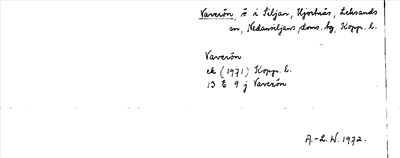 Vaverön, ö i Siljan, Hjortnäs, Leksands
sn, Nedansiljans doms. hg, Kopp. l.
Vaverön
ek (1971) Kopp. l.
13 E 9 j Vaverön
A.-L. W. 1972.